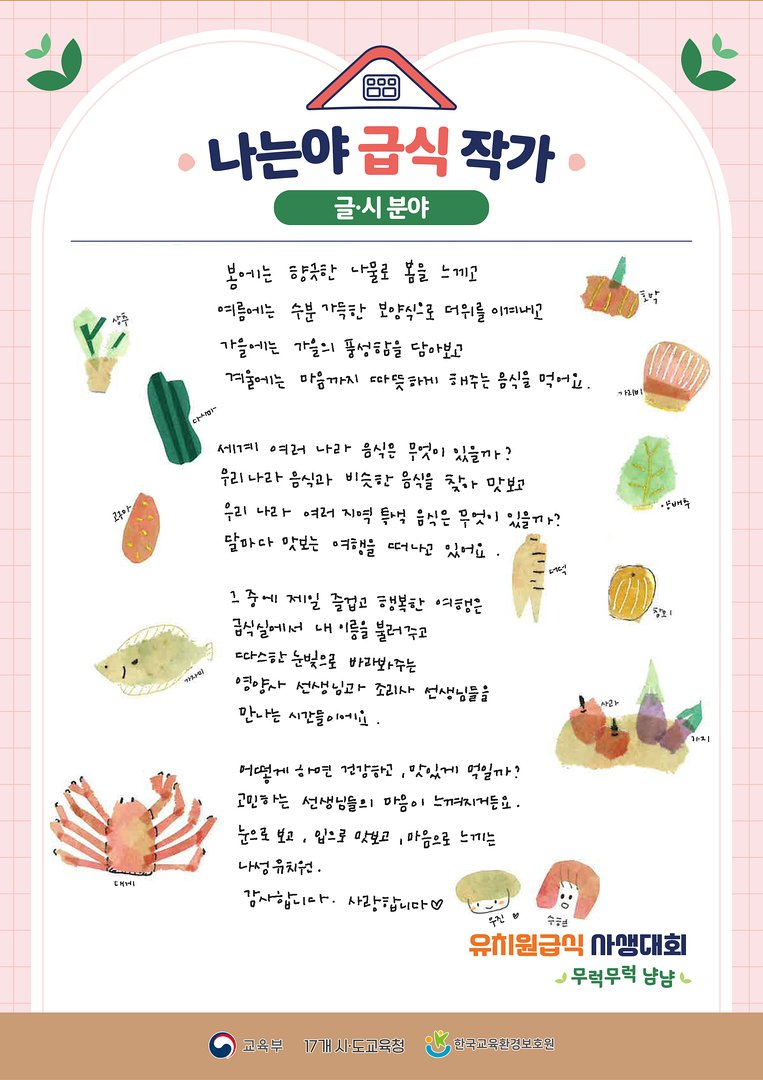 나는야 급식 작가
글·시 분야
봄에는 향긋한 나물로 봄을 느끼고
여름에는 수분 가득한 보양식으로 더위를 이겨내고
가을에는 가을의 풍성함을 담아보고
겨울에는 마음까지 따뜻하게 해주는 음식을 먹어요.
세계 여러 나라 음식은 무엇이 있을까?
우리나라 음식과 비슷한 음식을 찾아 맛보고
우리 나라 여러 지역 특색 음식은 무엇이 있을까?
달마다 맛보는 여행을 떠나고 있어요.
그 중에 제일 즐겁고 행복한 여행은
급식실에서 내 이름을 불러주고
따스한 눈빛으로 바라봐주는
영양사 선생님과 조리사 선생님들을
만나는 시간들이에요.
어떻게 하면 건강하고, 맛있게 먹일까?
고민하는 선생님들의 마음이 느껴지거든요.
눈으로 보고, 입으로 맛보고, 마음으로 느끼는
나성유치원.
감사합니다. 사랑합니다♡
상추
다시마
고구마
가자미
대게
호박
가리비
양배추
더덕
참외
사과
가지
우진 ♡
수현
유치원급식 사생대회
무럭무럭 냠냠
교육부 17개 시·도교육청 한국교육환경보호원